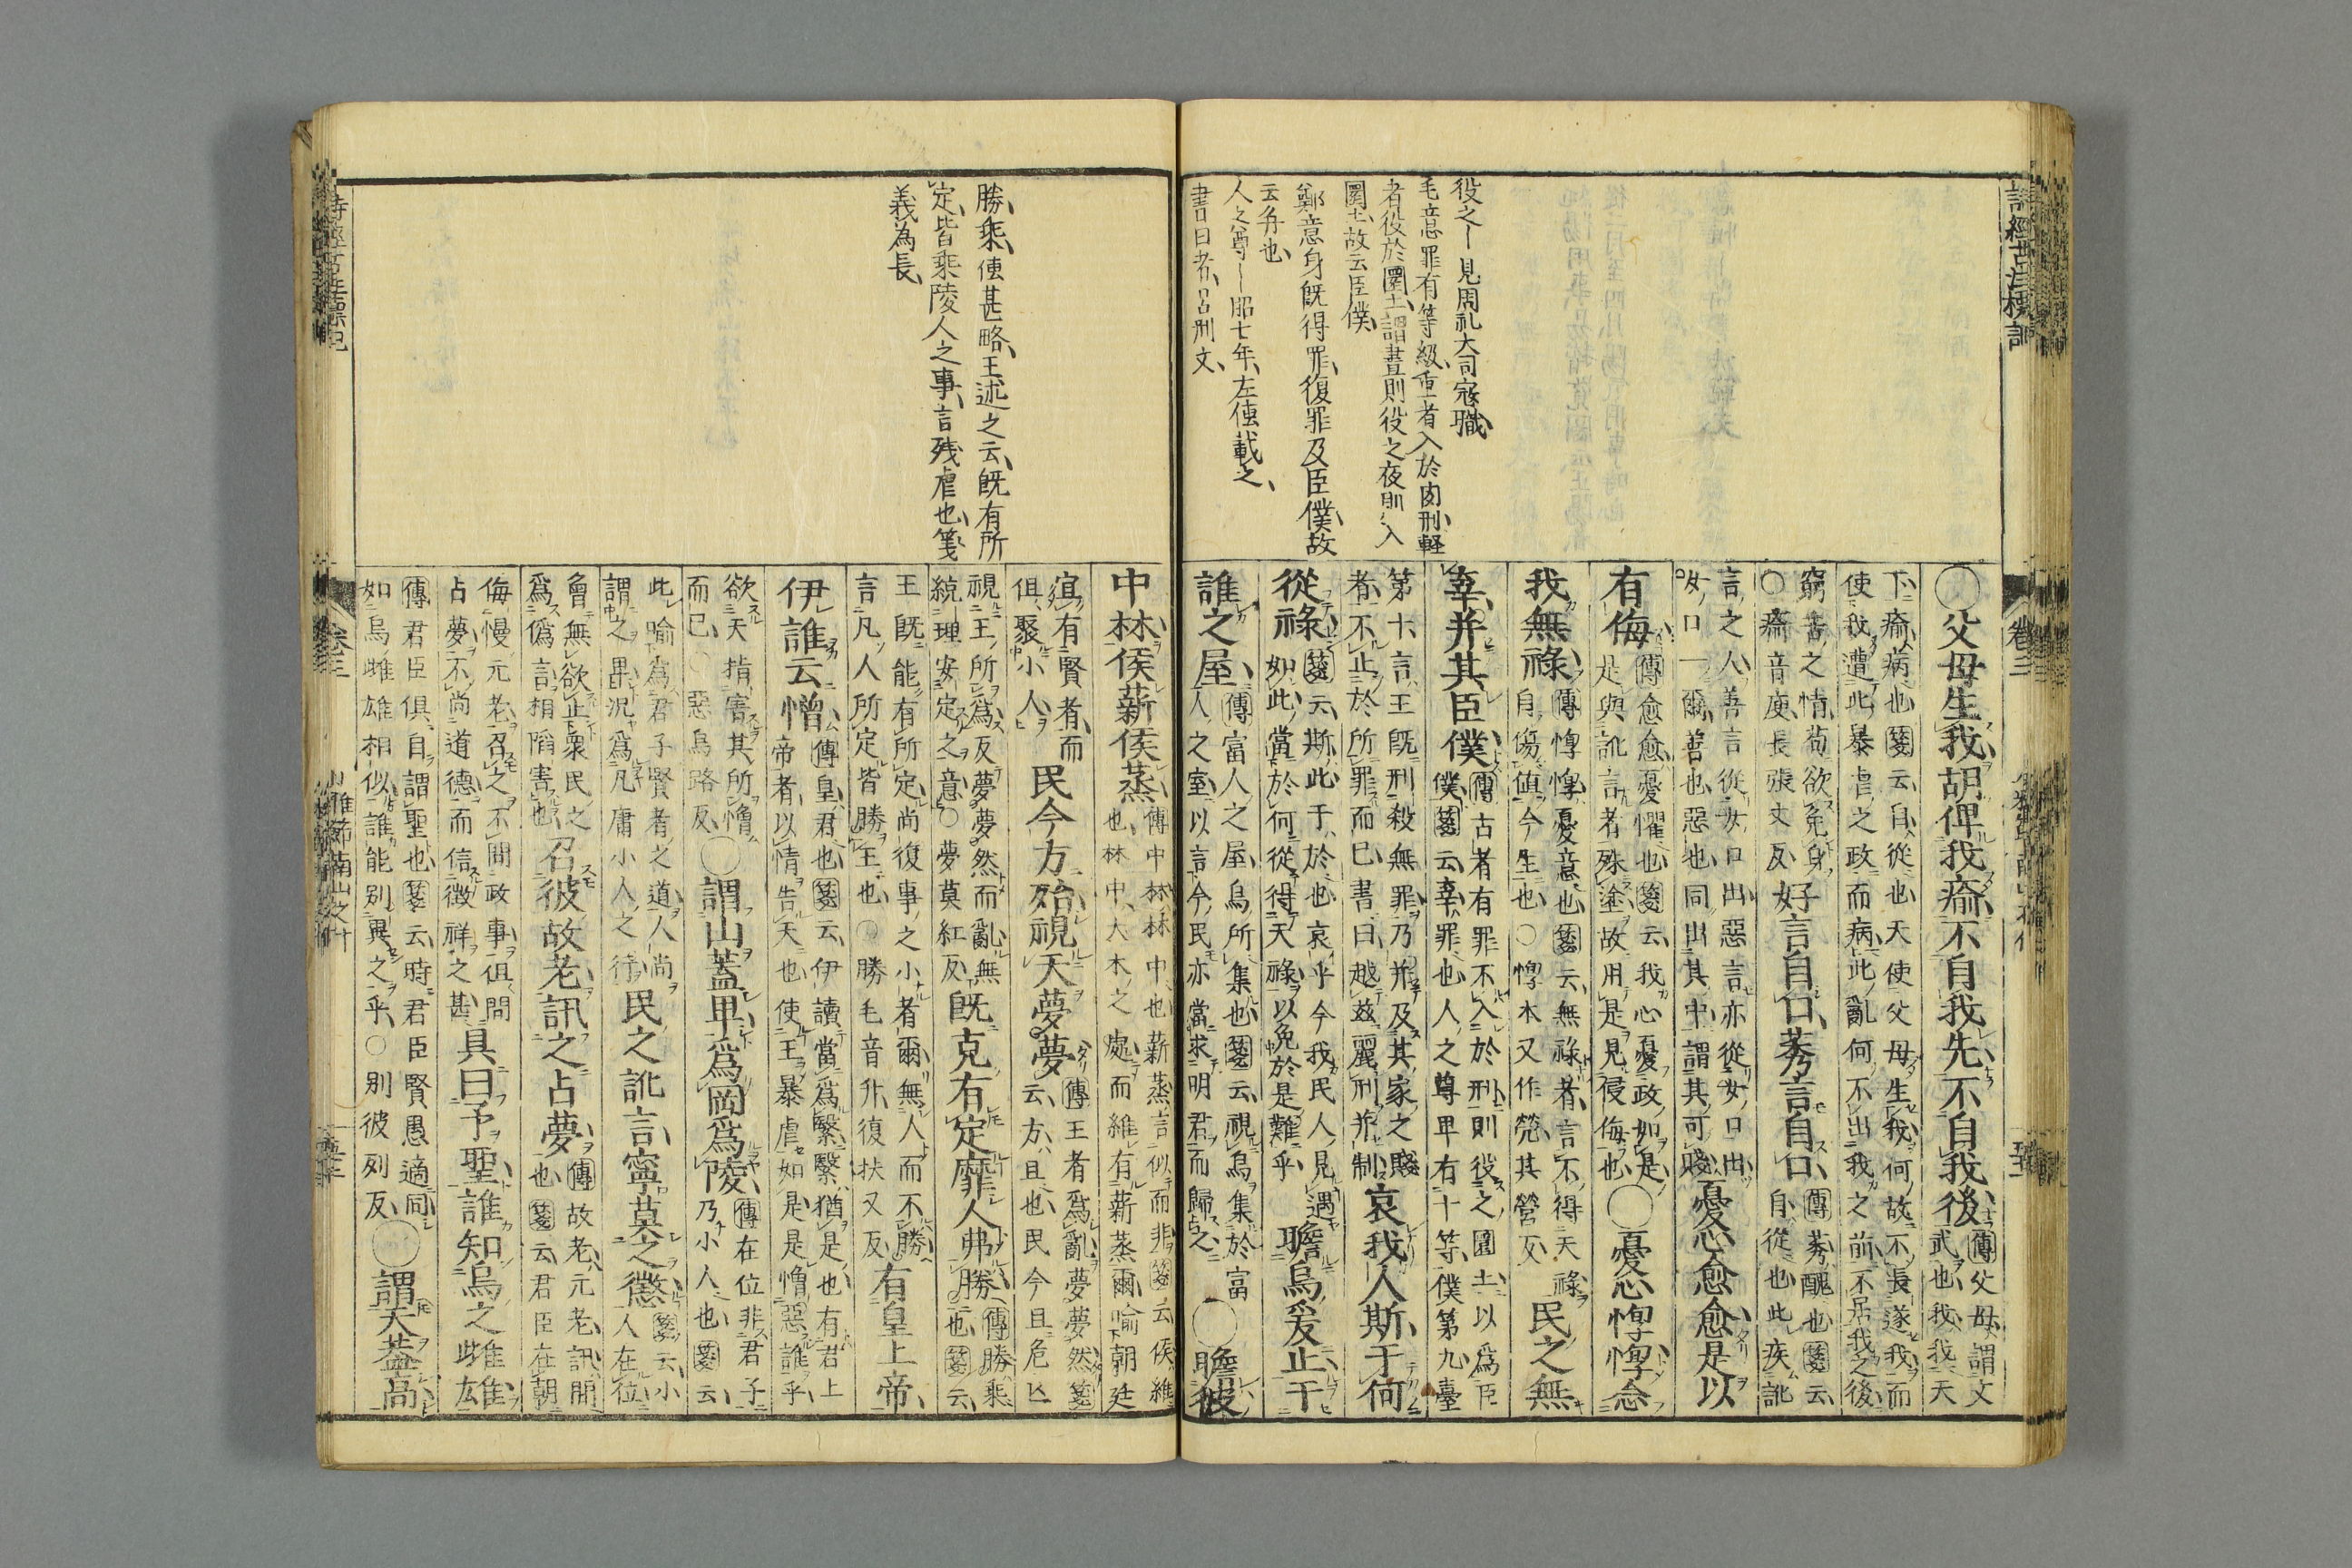 詩經古注標記
卷三
役之｜見周礼大司寇職
毛意罪有等級重者入於肉刑軽
者役於圜土謂晝則役之夜則入
圜土故云臣僕
鄭意身既得罪復罪及臣僕故
云并也
人之尊｜昭七年左傳載之
書曰者呂刑文
○父母生我胡俾我瘉不自我先不自我後
傳父母謂文
武也我我天
下瘉病也箋云自從也天使父母生我何故不長遂我而
使我遭此暴虐之政而病此亂何不出我之前不居我之後
窮苦之情苟欲免身
○瘉音庾長張丈反
好言自口莠言自口
傳莠醜也箋云
自從也此疾訛
言之人善言從女口出惡言亦從女口出
女口一爾善也惡也同出其中謂其可賤
憂心愈愈是以
有侮
傳愈愈憂懼也箋云我心憂政如是
是與訛言者殊塗故用是見侵侮也
○憂心惸惸念
我無祿
傳惸惸憂意也箋云無祿者言不得天祿
自傷値今生也○惸本又作煢其營反
民之無
辜并其臣僕
傳古者有罪不入於刑則役之圜土以爲臣
僕箋云辜罪也人之尊卑有十等僕第九臺
第十言王既刑殺無罪乃并及其家之賤
者不止於所罪而已書曰越茲麗刑并制
哀我人斯于何
從祿
箋云斯此于於也哀乎今我民人見遇
如此當於何從得天祿以免於是難乎
瞻烏爰止于
誰之屋
傳富人之屋烏所集也箋云視烏集於富
人之室以言今民亦當求明君而歸之
○瞻彼
勝乘傳甚略王述之云既有所
定皆乘陵人之事言残虐也箋
義為長
中林侯薪侯蒸
傳中林林中也薪蒸言似而非箋云侯維
也林中大木之處而維有薪蒸爾喻朝廷
宜有賢者而
但聚小人
民今方殆視天夢夢
傳王者爲亂夢夢然箋
云方且也民今且危亡
視王所爲反夢夢然而亂無
統理安定之意○夢莫紅反
既克有定靡人弗勝
傳勝乘
也箋云
王既能有所定尚復事之小者爾無人而不勝
言凡人所定皆勝王也○勝毛音升復扶又反
有皇上帝
伊誰云憎
傳皇君也箋云伊讀當爲繄繄猶是也有君上
帝者以情告天也使王暴虐如是是憎惡誰乎
欲天指害其所憎
而已○惡烏路反
○謂山蓋卑爲岡爲陵
傳在位非君子
乃小人也箋云
此喻爲君子賢者之道人尚
謂之卑況爲凡庸小人之行
民之訛言寧莫之懲
箋云小
人在位
曾無欲止衆民之
爲僞言相陷害也
召彼故老訊之占夢
傳故老元老訊問
也箋云君臣在朝
侮慢元老召之不問政事但問
占夢不尚道德而信徵祥之甚
具曰予聖誰知烏之雌雄
傳君臣俱自謂聖也箋云時君臣賢愚適同
如烏雌雄相似誰能別異之乎○別彼列反
○謂天蓋高
詩經古注標記
卷三
小雅節南山之什